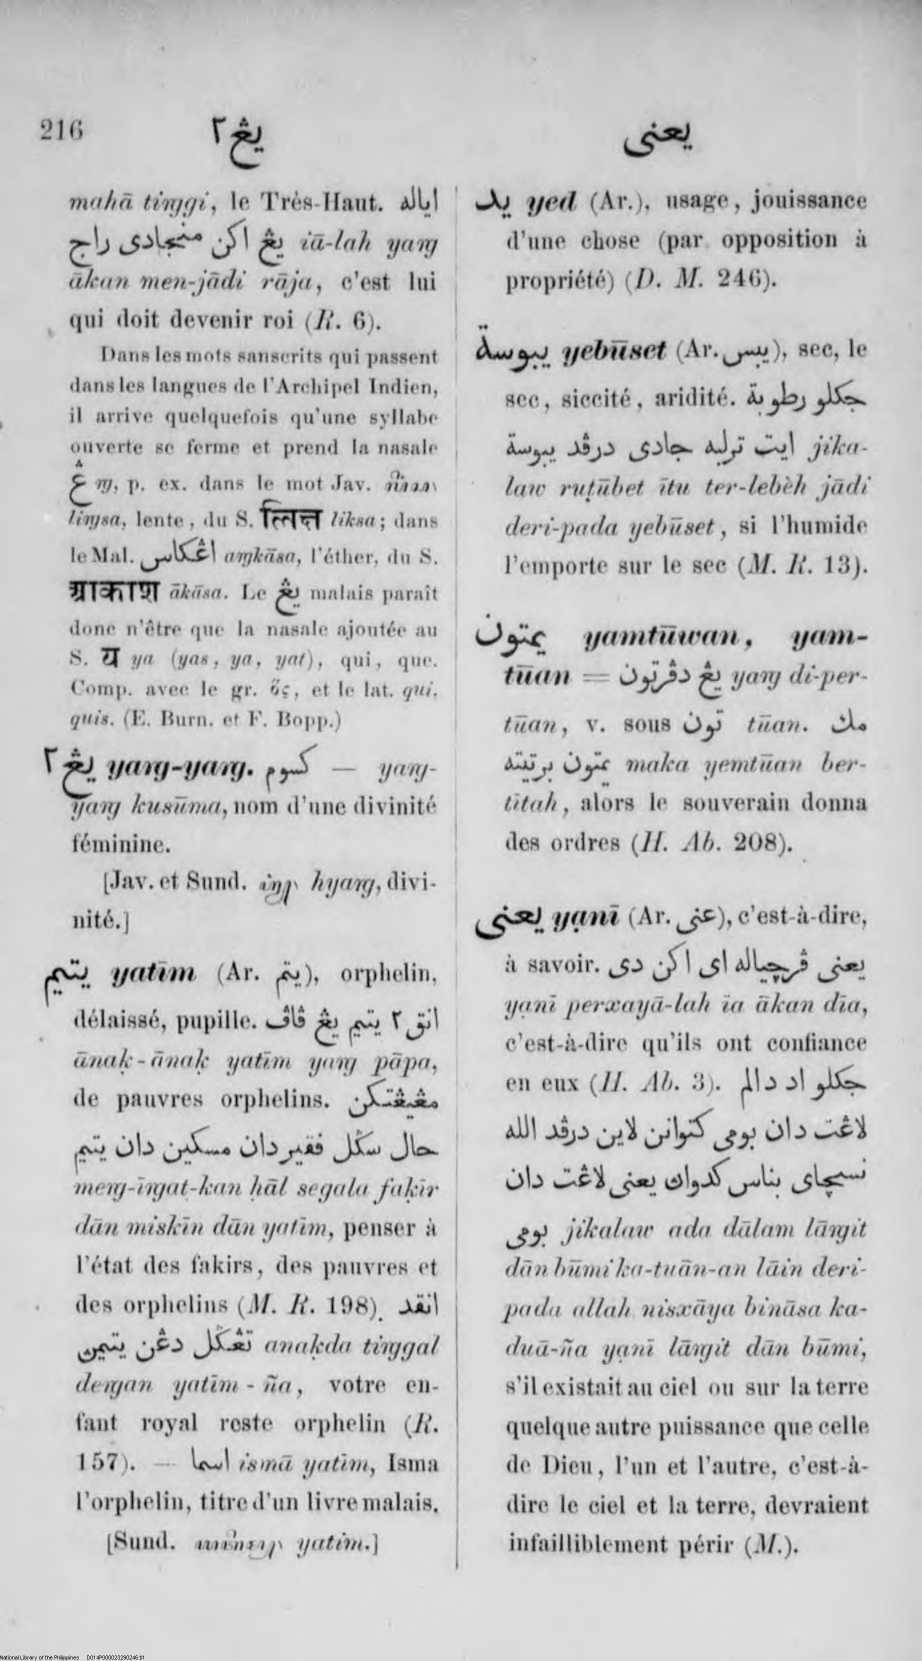 216
يڠ٢
يعنى
mahā tiṇggi, le Très-Haut. اياله
يڠ اكن منجادى راج iā-lah yaṇg
ākan men-jādi rāja, c'est lui
qui doit devenir roi (R. 6).
Dans les mots sanscrits qui passent
dans les langues de l'Archipel Indien,
il arrive quelquefois qu'une syllabe
ouverte se ferme et prend la nasale
ڠ ṇg, p. ex. dans le mot Jav.
liṇgsa, lente, du S. लिक्ष liksa; dans
le Mal. اڠكاس aṇgkāsa, l'éther, du S.
आकाश ākāsa. Le يڠ malais paraît
donc n'être que la nasale ajoutée au
S. य ya (yas, ya, yat), qui, que.
Comp. avec le gr. ὅς, et le lat. qui,
quis. (E. Burn. et F. Bopp.)
يڠ٢ yaṇg-yaṇg. كسوم — yaṇg-
yaṇg kusūma, nom d'une divinité
féminine.
[Jav. et Sund. hyaṇg, divi-
nité.]
يتيم yatīm (Ar. يتم), orphelin,
délaissé, pupille. انق٢ يتيم يڠ ڤاڤ
ānaḳ-ānaḳ yatīm yaṇg pāpa,
de pauvres orphelins. مڠيڠتكن
حال سڬل فقير دان مسكين دان يتيم
meṇg-īṇgat-kan ḥāl segala faḳīr
dān miskīn dān yatīm, penser à
l'état des fakirs, des pauvres et
des orphelins (M. R. 198). انقد
تڠڬل دڠن يتيمن anaḳda tiṇggal
deṇgan yatīm-ña, votre en-
fant royal reste orphelin (R.
157). — اسما ismā yatīm, Isma
l'orphelin, titre d'un livre malais.
[Sund. yatim.]
يد yed (Ar.), usage, jouissance
d'une chose (par opposition à
propriété) (D. M. 246).
يبوسة yebūset (Ar. يبس), sec, le
sec, siccité, aridité. جكلو رطوبة
ايت ترلبه جادى درڤد يبوسة jika-
law ruṭūbet ītu ter-lebèh jādi
deri-pada yebūset, si l'humide
l'emporte sur le sec (M. R. 13).
يمتون yamtūwan, yam-
tūan = يڠ دڤرتون yaṇg di-per-
tūan, v. sous تون tūan. مك
يمتون برتيته maka yemtūan ber-
tītah, alors le souverain donna
des ordres (H. Ab. 208).
يعنى yạnī (Ar. عنى), c'est-à-dire,
à savoir. يعنى ڤرچياله اى اكن دى
yạnī perxayā-lah īa ākan dīa,
c'est-à-dire qu'ils ont confiance
en eux (H. Ab. 3). جكلو اد دالم
لاڠت دان بومى كتوانن لاين درڤد الله
نسچاى بناس كدوان يعنى لاڠت دان
بومى jikalaw ada dālam lāṇgit
dān būmi ka-tuān-an lāin deri-
pada allah nisxāya bināsa ka-
duā-ña yạnī lāṇgit dān būmi,
s'il existait au ciel ou sur la terre
quelque autre puissance que celle
de Dieu, l'un et l'autre, c'est-à-
dire le ciel et la terre, devraient
infailliblement périr (M.).
National Library of the Philippines